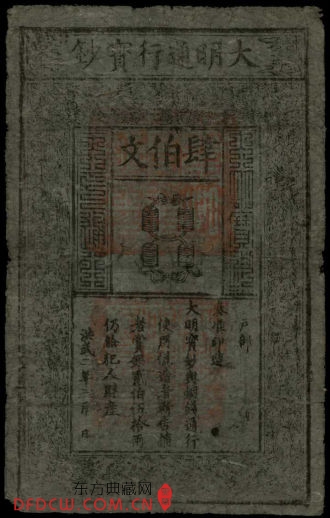 大明通行寶鈔
肆伯文
戶部
奏准印造
大明寶鈔與銅錢通行
使用偽造者斬告捕
者賞銀貳伯伍拾兩
仍給犯人財產
洪武 年 月 日
东方典藏网
DFDCW.COM.CN